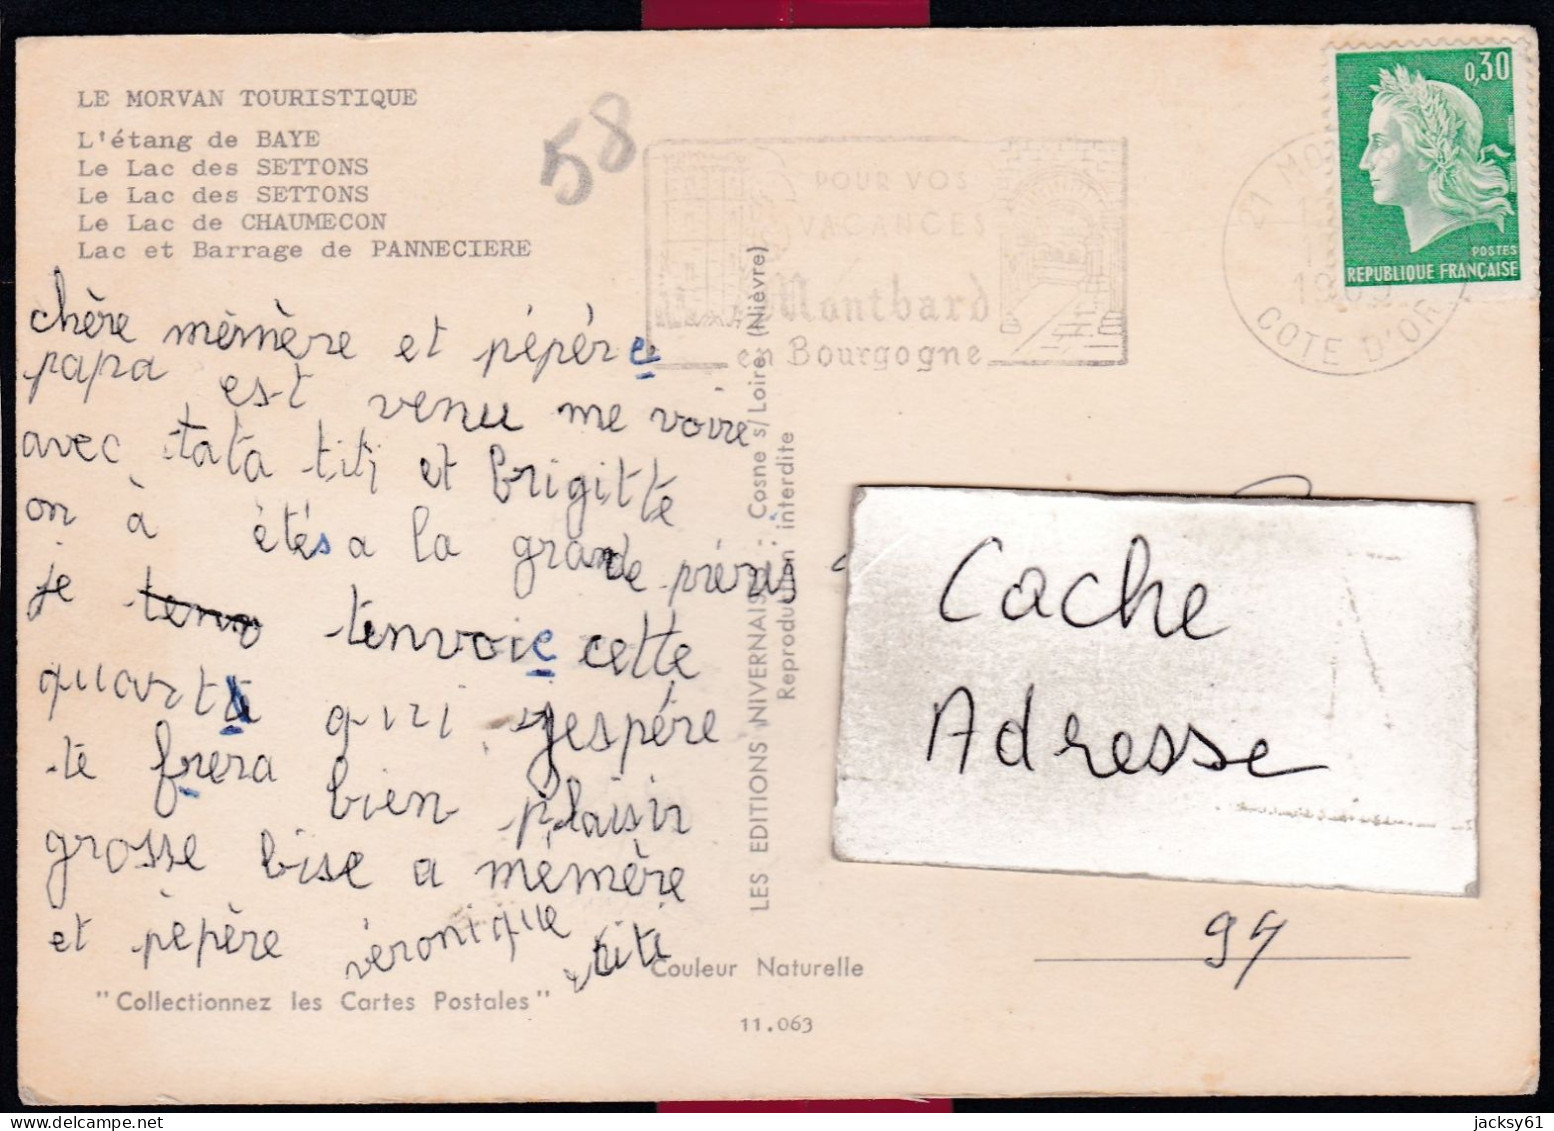 LE MORVAN TOURISTIQUE
L'étang de BAYE
Le Lac des SETTONS
Le Lac des SETTONS
Le Lac de CHAUMECON
Lac et Barrage de PANNECIERE
58
chère mémère et pépère
papa est venu me voire
avec tata titi et brigitte
on à étés a la grande
je tenvoie cette
quarte qui jespére
te frera bien plaisir
grosse bise a mémère
et pépère véronique titi
"Collectionnez les Cartes Postales"
Couleur Naturelle
11.063
LES EDITIONS NIVERNAISES : Cosne s/Loire (Nièvre)
Reproduction interdite
POUR VOS
VACANCES
Montbard
en Bourgogne
21 MO
COTE D'OR
0,30
POSTES
REPUBLIQUE FRANÇAISE
Cache
Adresse
94
jacksy61